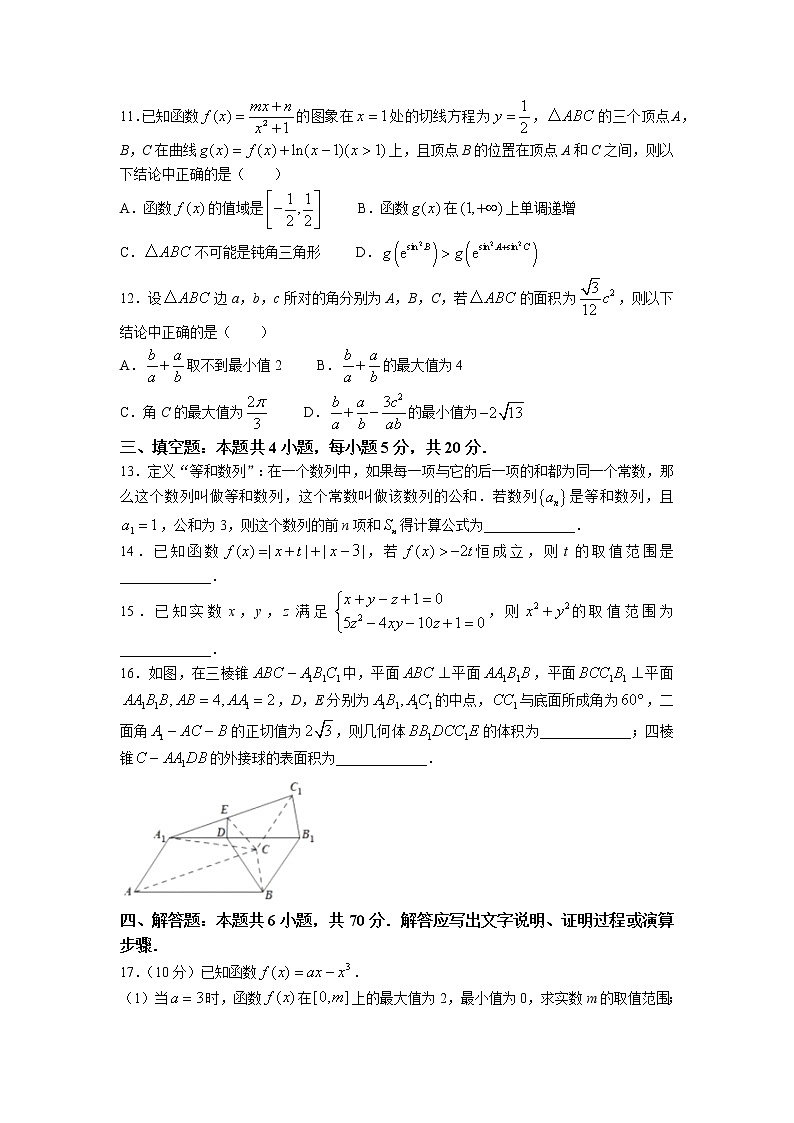 11.已知函数 f(x)=\frac{mx+n}{x^2+1} 的图象在 x=1 处的切线方程为 y=\frac{1}{2}，△ABC 的三个顶点 A，
B，C 在曲线 g(x)=f(x)+ln(x-1)(x>1) 上，且顶点 B 的位置在顶点 A 和 C 之间，则以
下结论中正确的是（　　）
A．函数 f(x) 的值域是 [-\frac{1}{2},\frac{1}{2}]　　B．函数 g(x) 在 (1,+∞) 上单调递增
C．△ABC 不可能是钝角三角形　　D．g(e^{sin^2 B})>g(e^{sin^2 A+sin^2 C})
12．设△ABC 边 a，b，c 所对的角分别为 A，B，C，若△ABC 的面积为 \frac{\sqrt{3}}{12}c^2，则以下
结论中正确的是（　　）
A．\frac{b}{a}+\frac{a}{b} 取不到最小值 2　　B．\frac{b}{a}+\frac{a}{b} 的最大值为 4
C．角 C 的最大值为 \frac{2π}{3}　　D．\frac{b}{a}+\frac{a}{b}-\frac{3c^2}{ab} 的最小值为 -2\sqrt{13}
三、填空题：本题共 4 小题，每小题 5 分，共 20 分．
13．定义“等和数列”：在一个数列中，如果每一项与它的后一项的和都为同一个常数，那
么这个数列叫做等和数列，这个常数叫做该数列的公和．若数列{a_n}是等和数列，且
a_1=1，公和为 3，则这个数列的前 n 项和 S_n 得计算公式为____________．
14．已知函数 f(x)=|x+t|+|x-3|，若 f(x)>-2t 恒成立，则 t 的取值范围是
____________．
15．已知实数 x，y，z 满足 {x+y-z+1=0 5z^2-4xy-10z+1=0，则 x^2+y^2 的取值范围为
____________．
16．如图，在三棱锥 ABC-A_1B_1C_1 中，平面 ABC⊥平面 AA_1B_1B，平面 BCC_1B_1⊥平面
AA_1B_1B,AB=4,AA_1=2，D，E 分别为 A_1B_1,A_1C_1 的中点，CC_1 与底面所成角为 60°，二
面角 A_1-AC-B 的正切值为 2\sqrt{3}，则几何体 BB_1DCC_1E 的体积为____________；四棱
锥 C-AA_1DB 的外接球的表面积为____________．
C_1
E
A_1 D B_1
C
A B
四、解答题：本题共 6 小题，共 70 分．解答应写出文字说明、证明过程或演算
步骤．
17.（10 分）已知函数 f(x)=ax-x^3．
（1）当 a=3 时，函数 f(x) 在[0,m]上的最大值为 2，最小值为 0，求实数 m 的取值范围；